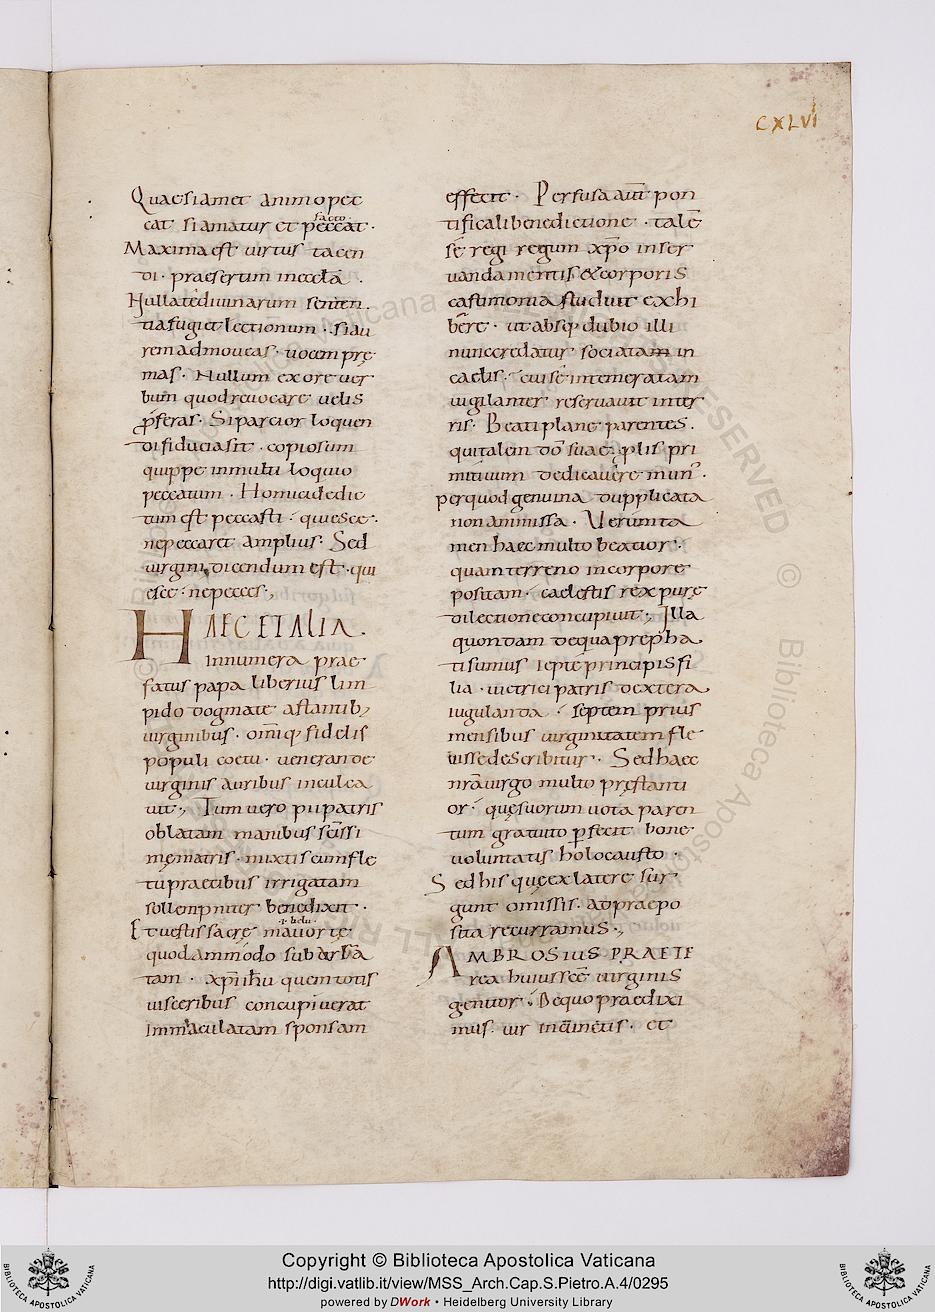 CXLVI
Quae si amet animo pec
cat si amatur et peccat ·
facto
Maxima est virtus tacen
di · praesertim in eccła ·
Nulla te divinarum senten
tia fugiet lectionum · si au
rem admoveas · vocem pre
mas · Nullum ex ore ver
bum quod revocare velis
p̄feras · Si parcior loquen
di fiducia sit · copiosum
quippe in multi loquio
peccatum · Homicide dic
tum est peccasti · quiesce ·
ne peccaret amplius · Sed
virgini dicendum est · qui
esce · ne pecces ;
HAEC ET ALIA ·
innumera prae
fatus papa liberius lim
pido dogmate astantib;
virginibus · om̄iq; fidelis
populi coetu · venerande
virginis auribus inculca
vit ; Tum vero pii patris
oblatam manibus sc̄issi
mę matris · mixtis cum fle
tu praecibus irrigatam
sollempniter benedixit ·
Et vestis sacrę maiorte
quodammodo sub
tam · xp̄i ih̄u quem totis
visceribus concupiverat
immaculatam sponsam
effecit · Perfusa aūt pon
tificali benedictione · talē
sē regi regum xp̄o in ser
vanda mentis & corporis
castimonia studuit exhi
bēre · ut absq; dubio illi
nunc credatur sociata in
caelis · cui sē intemeratam
vigilanter reservavit in ter
ris · Beati plane parentes ·
qui talem dō suae plis pri
mitivum dedicavēre mun ·
per quod genuina dupplicata
non amissa · Verumta
men haec multo beatior ·
quam terreno in corpore
positam · caelestis rex purę
dilectione concupivit ; Illa
quondam de qua prepha
ti sumus iepte principis fi
lia · victrici patris dextera
iugulanda · septem prius
mensibus virginitatem fle
visse describitur · Sed haec
nr̄a virgo multo pręstanti
or · quę suorum vota paren
tum gratuito p̄fecit bonę
voluntatis holocausto ·
Sed his quę ex latere sur
gunt omissis · ad praepo
sita recurramus ;
AMBROSIUS PRAETE
rea huius scē virginis
genitor · De quo praedixi
mus · vir · et
Copyright © Biblioteca Apostolica Vaticana
http://digi.vatlib.it/view/MSS_Arch.Cap.S.Pietro.A.4/0295
powered by DWork • Heidelberg University Library
BIBLIOTECA APOSTOLICA VATICANA
BIBLIOTECA APOSTOLICA VATICANA